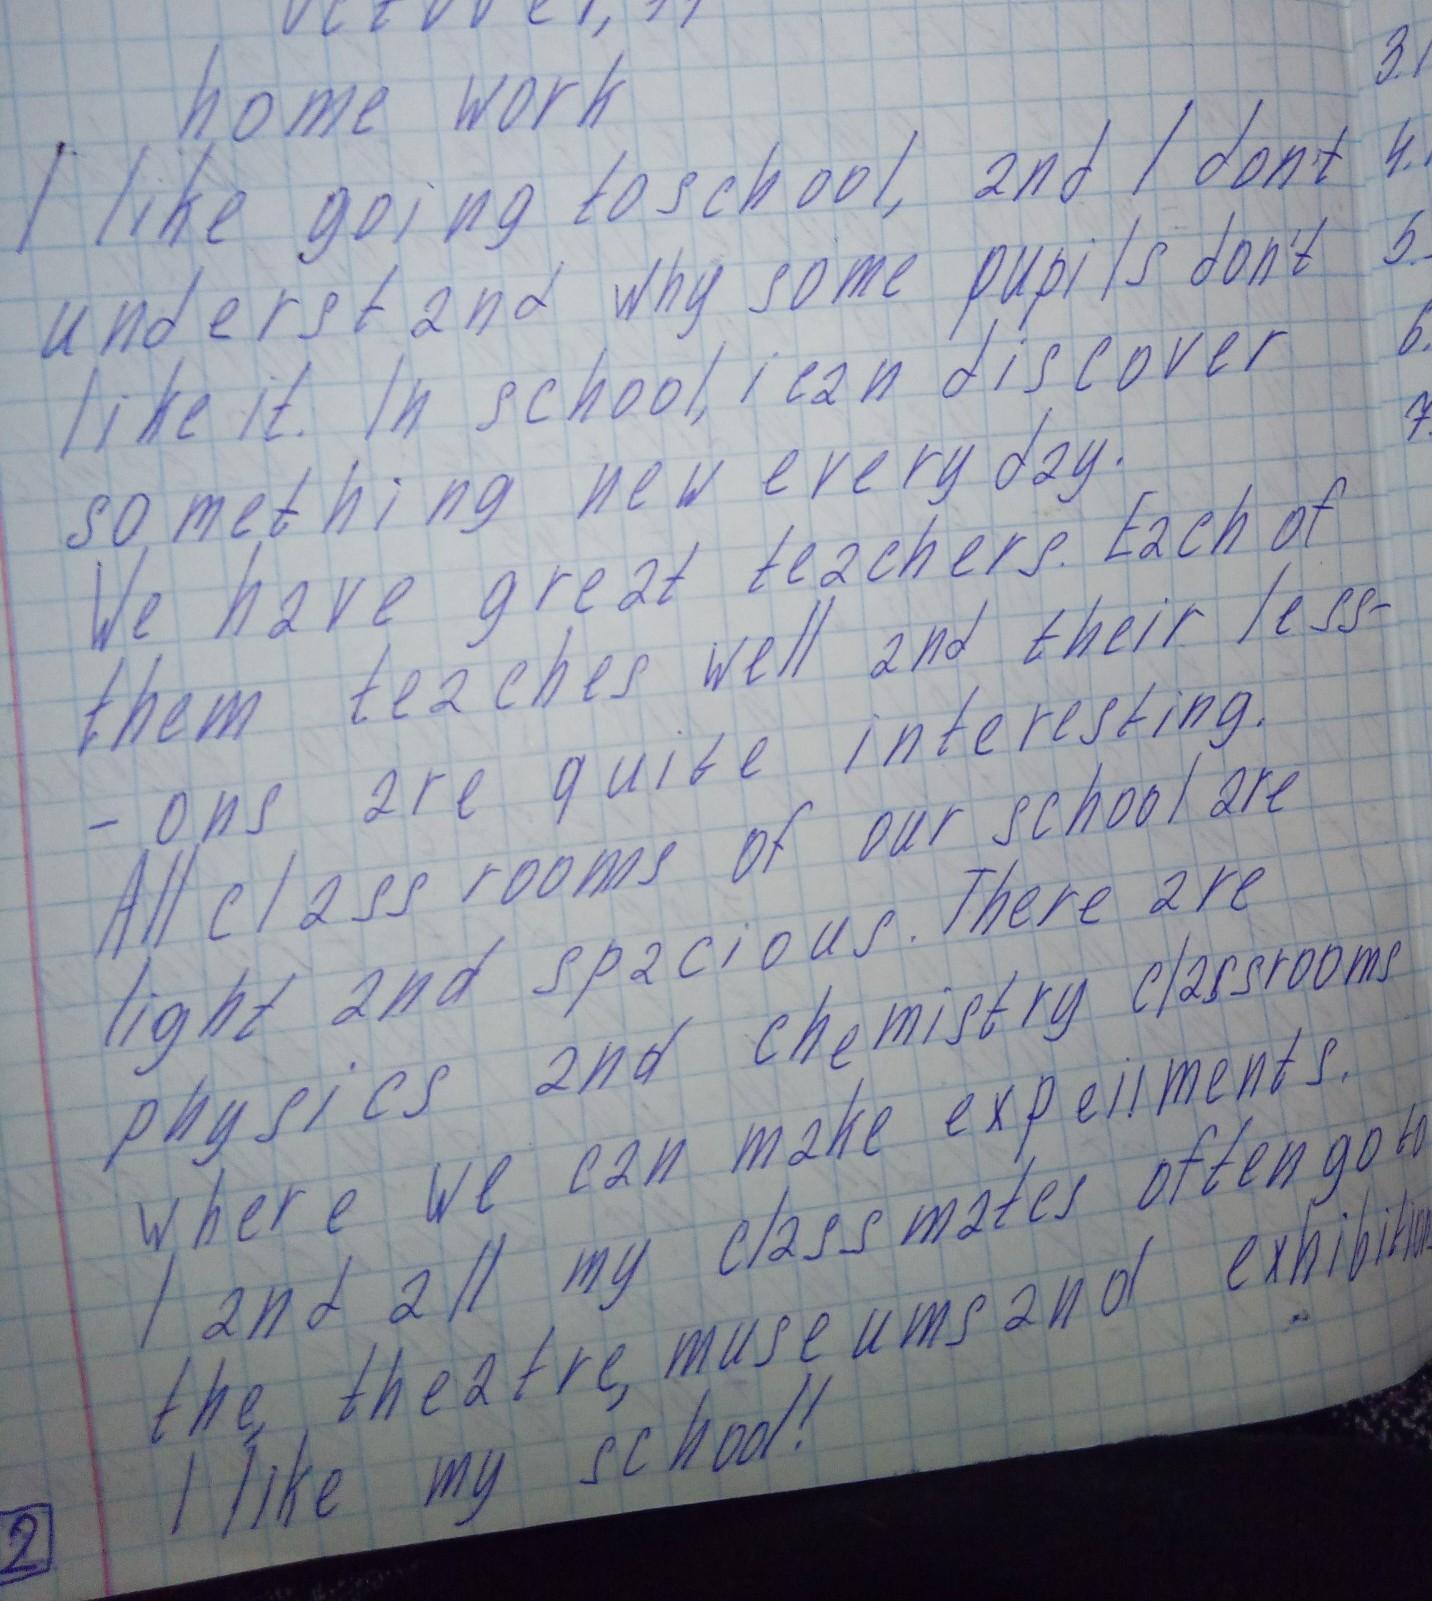 home work
I like going to school, and I don't
understand why some pupils don't
like it. In school, i can discover
something new every day.
We have great teachers. Each of
them teaches well and their less-
- ons are quite interesting.
All classrooms of our school are
light and spacious. There are
physics and chemistry classrooms
where we can make expeiiments.
I and all my classmates often go to
the, theatre, museums and exhibitions
I like my school!
2
3.
4.
5.
6.
7.